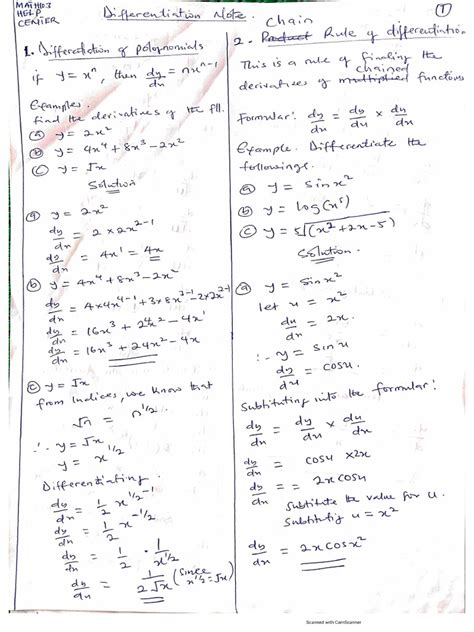 MATH103
HELP
CENTER
Differentiation Note.
①
1. Differentiation of polynomials
if y = xⁿ, then dy/dx = nxⁿ⁻¹
Examples.
find the derivatives of the fll.
ⓐ y = 2x²
ⓑ y = 4x⁴ + 8x³ - 2x²
ⓒ y = √x
Solution
ⓐ y = 2x²
dy/dx = 2 × 2x²⁻¹
dy/dx = 4x¹ = 4x
ⓑ y = 4x⁴ + 8x³ - 2x²
dy/dx = 4×4x⁴⁻¹ + 3×8x³⁻¹ - 2×2x²⁻¹
dy/dx = 16x³ + 24x² - 4x¹
dy/dx = 16x³ + 24x² - 4x
ⓒ y = √x
from Indices, we know that
√n = n^1/2
∴ y = √x
y = x^1/2
Differentiating.
dy/dx = 1/2 x^1/2-1
dy/dx = 1/2 x^-1/2
dy/dx = 1/2 · 1/x^1/2
dy/dx = 1/2√x (since x^1/2 = √x)
Chain
2. Product Rule of differentiation
This is a rule of finding the
chained
derivatives of multiplied functions
Formular: dy/dx = dy/du × du/dx
Example. Differentiate the
followings.
ⓐ y = sinx²
ⓑ y = log(x⁵)
ⓒ y = 5√(x²+2x-5)
Solution.
ⓐ y = sinx²
let u = x²
du/dx = 2x.
∴ y = sinu
dy/du = cosu.
Substituting into the formular:
dy/dx = dy/du × du/dx
dy/dx = cosu × 2x
dy/dx = 2xcosu
Substitute the value for u.
Substituting u = x²
dy/dx = 2xcosx²
Scanned with CamScanner